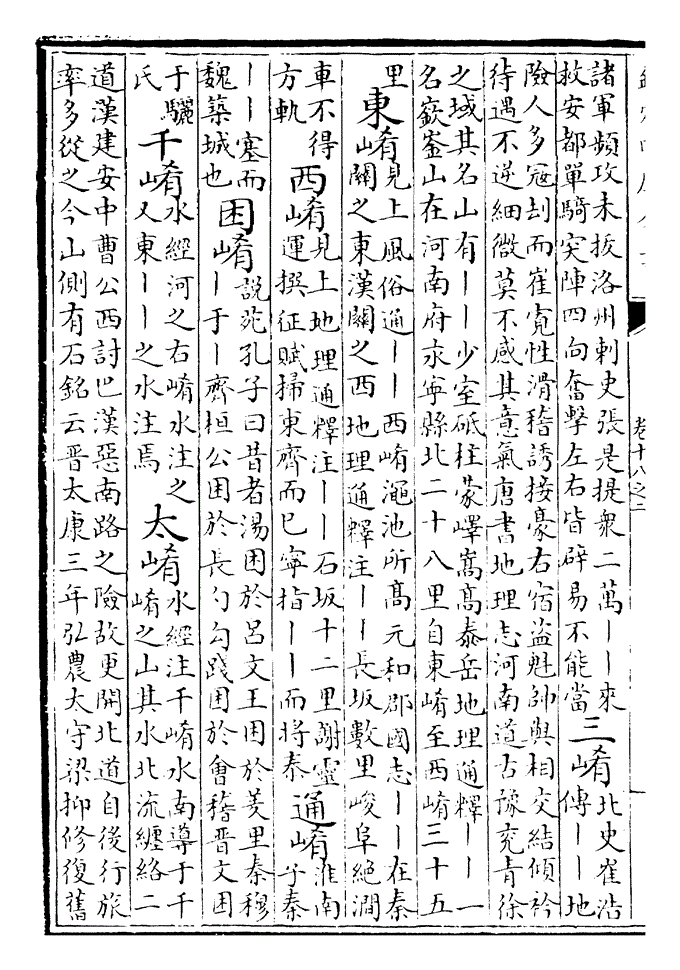 卷十八之二
諸軍頻攻未拔洛州刺史張是提衆二萬丨丨來
救安都單騎突陣四向奮擊左右皆辟易不能當
三崤
北史崔浩
傳丨丨地
險人多寇刦而崔寛性滑稽誘接豪右宿盗魁帥與相交結傾衿
待遇不逆細微莫不感其意氣唐書地理志河南道古豫兖青徐
之域其名山有丨丨少室砥柱蒙嶧嵩高泰岳地理通釋丨丨一
名嶔崟山在河南府永寧縣北二十八里自東崤至西崤三十五
里
東崤
見上風俗通丨丨西崤澠池所高元和郡國志丨丨在秦
關之東漢關之西 地理通釋注丨丨長坂數里峻阜絶澗
車不得
方軌
西崤
見上地理通釋注丨丨石坂十二里謝靈
運撰征賦掃東齊而已寧指丨丨而將泰
通崤
淮南
子秦
丨丨塞而
魏築城也
困崤
說苑孔子曰昔者湯困於呂文王困於羑里秦穆
丨于丨齊桓公困於長勺勾踐困於會稽晉文困
于驪
氏
千崤
水經河之右崤水注之
又東丨丨之水注焉
太崤
水經注千崤水南導于千
崤之山其水北流纏絡二
道漢建安中曹公西討巴漢惡南路之險故更開北道自後行旅
率多從之今山側有石銘云晉太康三年弘農太守梁抑修復舊